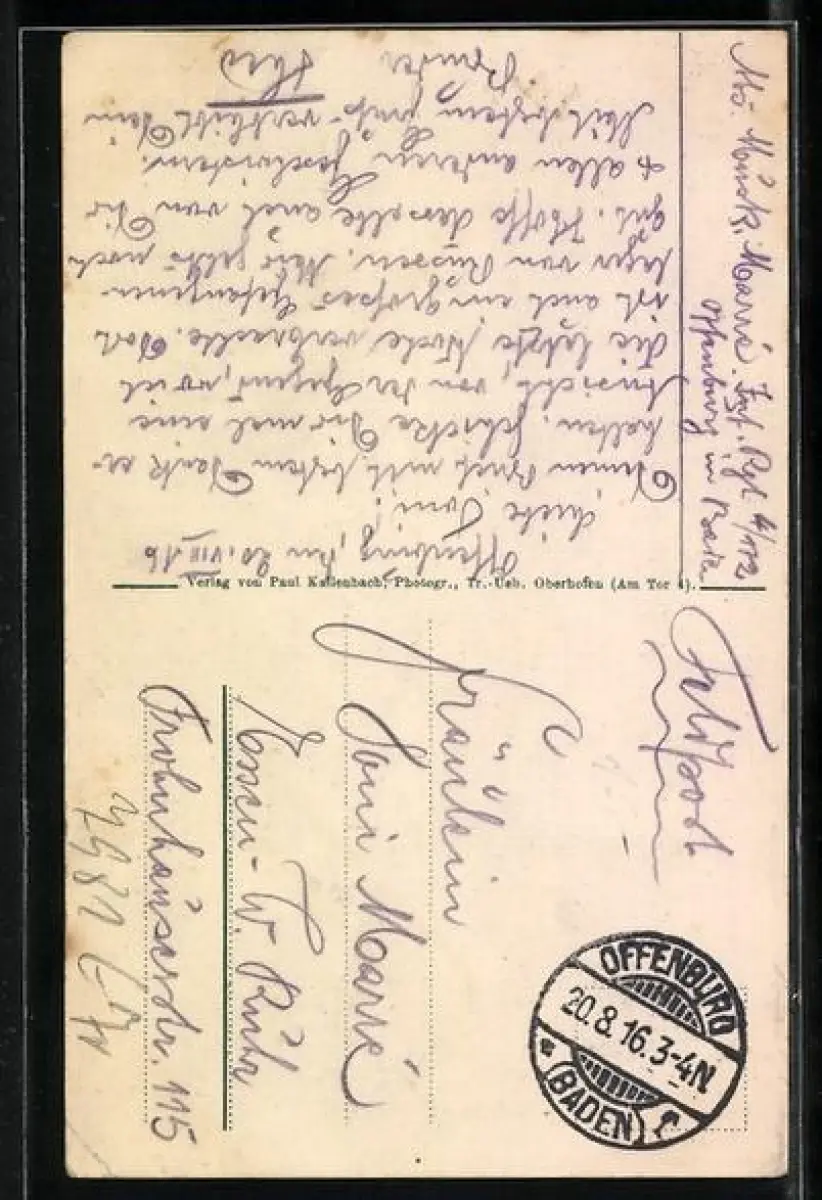 Offenburg, den 20. VIII 16
Liebe Toni!
Deinen Brief mit bestem Dank er-
halten. Schicke Dir mal eine
Ansicht, von der Gegend, wo ich
die letzte Woche verbrachte. Dort
ist auch ein großes Gefangenen-
lager von Russen. Mir geht's noch
gut. Hoffe dasselbe auch von Dir
& allen anderen Geschwistern.
Mit bestem Gruß verbleibt Dein
Bruder
Abs. Musk. Marré. Inf. Rgt 4/172
Offenburg in Baden
Verlag von Paul Kaßenbach, Photogr., Tr.-Ueb. Oberhofen (Am Tor 4).
Feldpost
Fräulein
Toni Marré
Essen-W. Ruhr
Frohnhauserstr. 115
OFFENBURG
20.8.16.3-4N.
* (BADEN) c